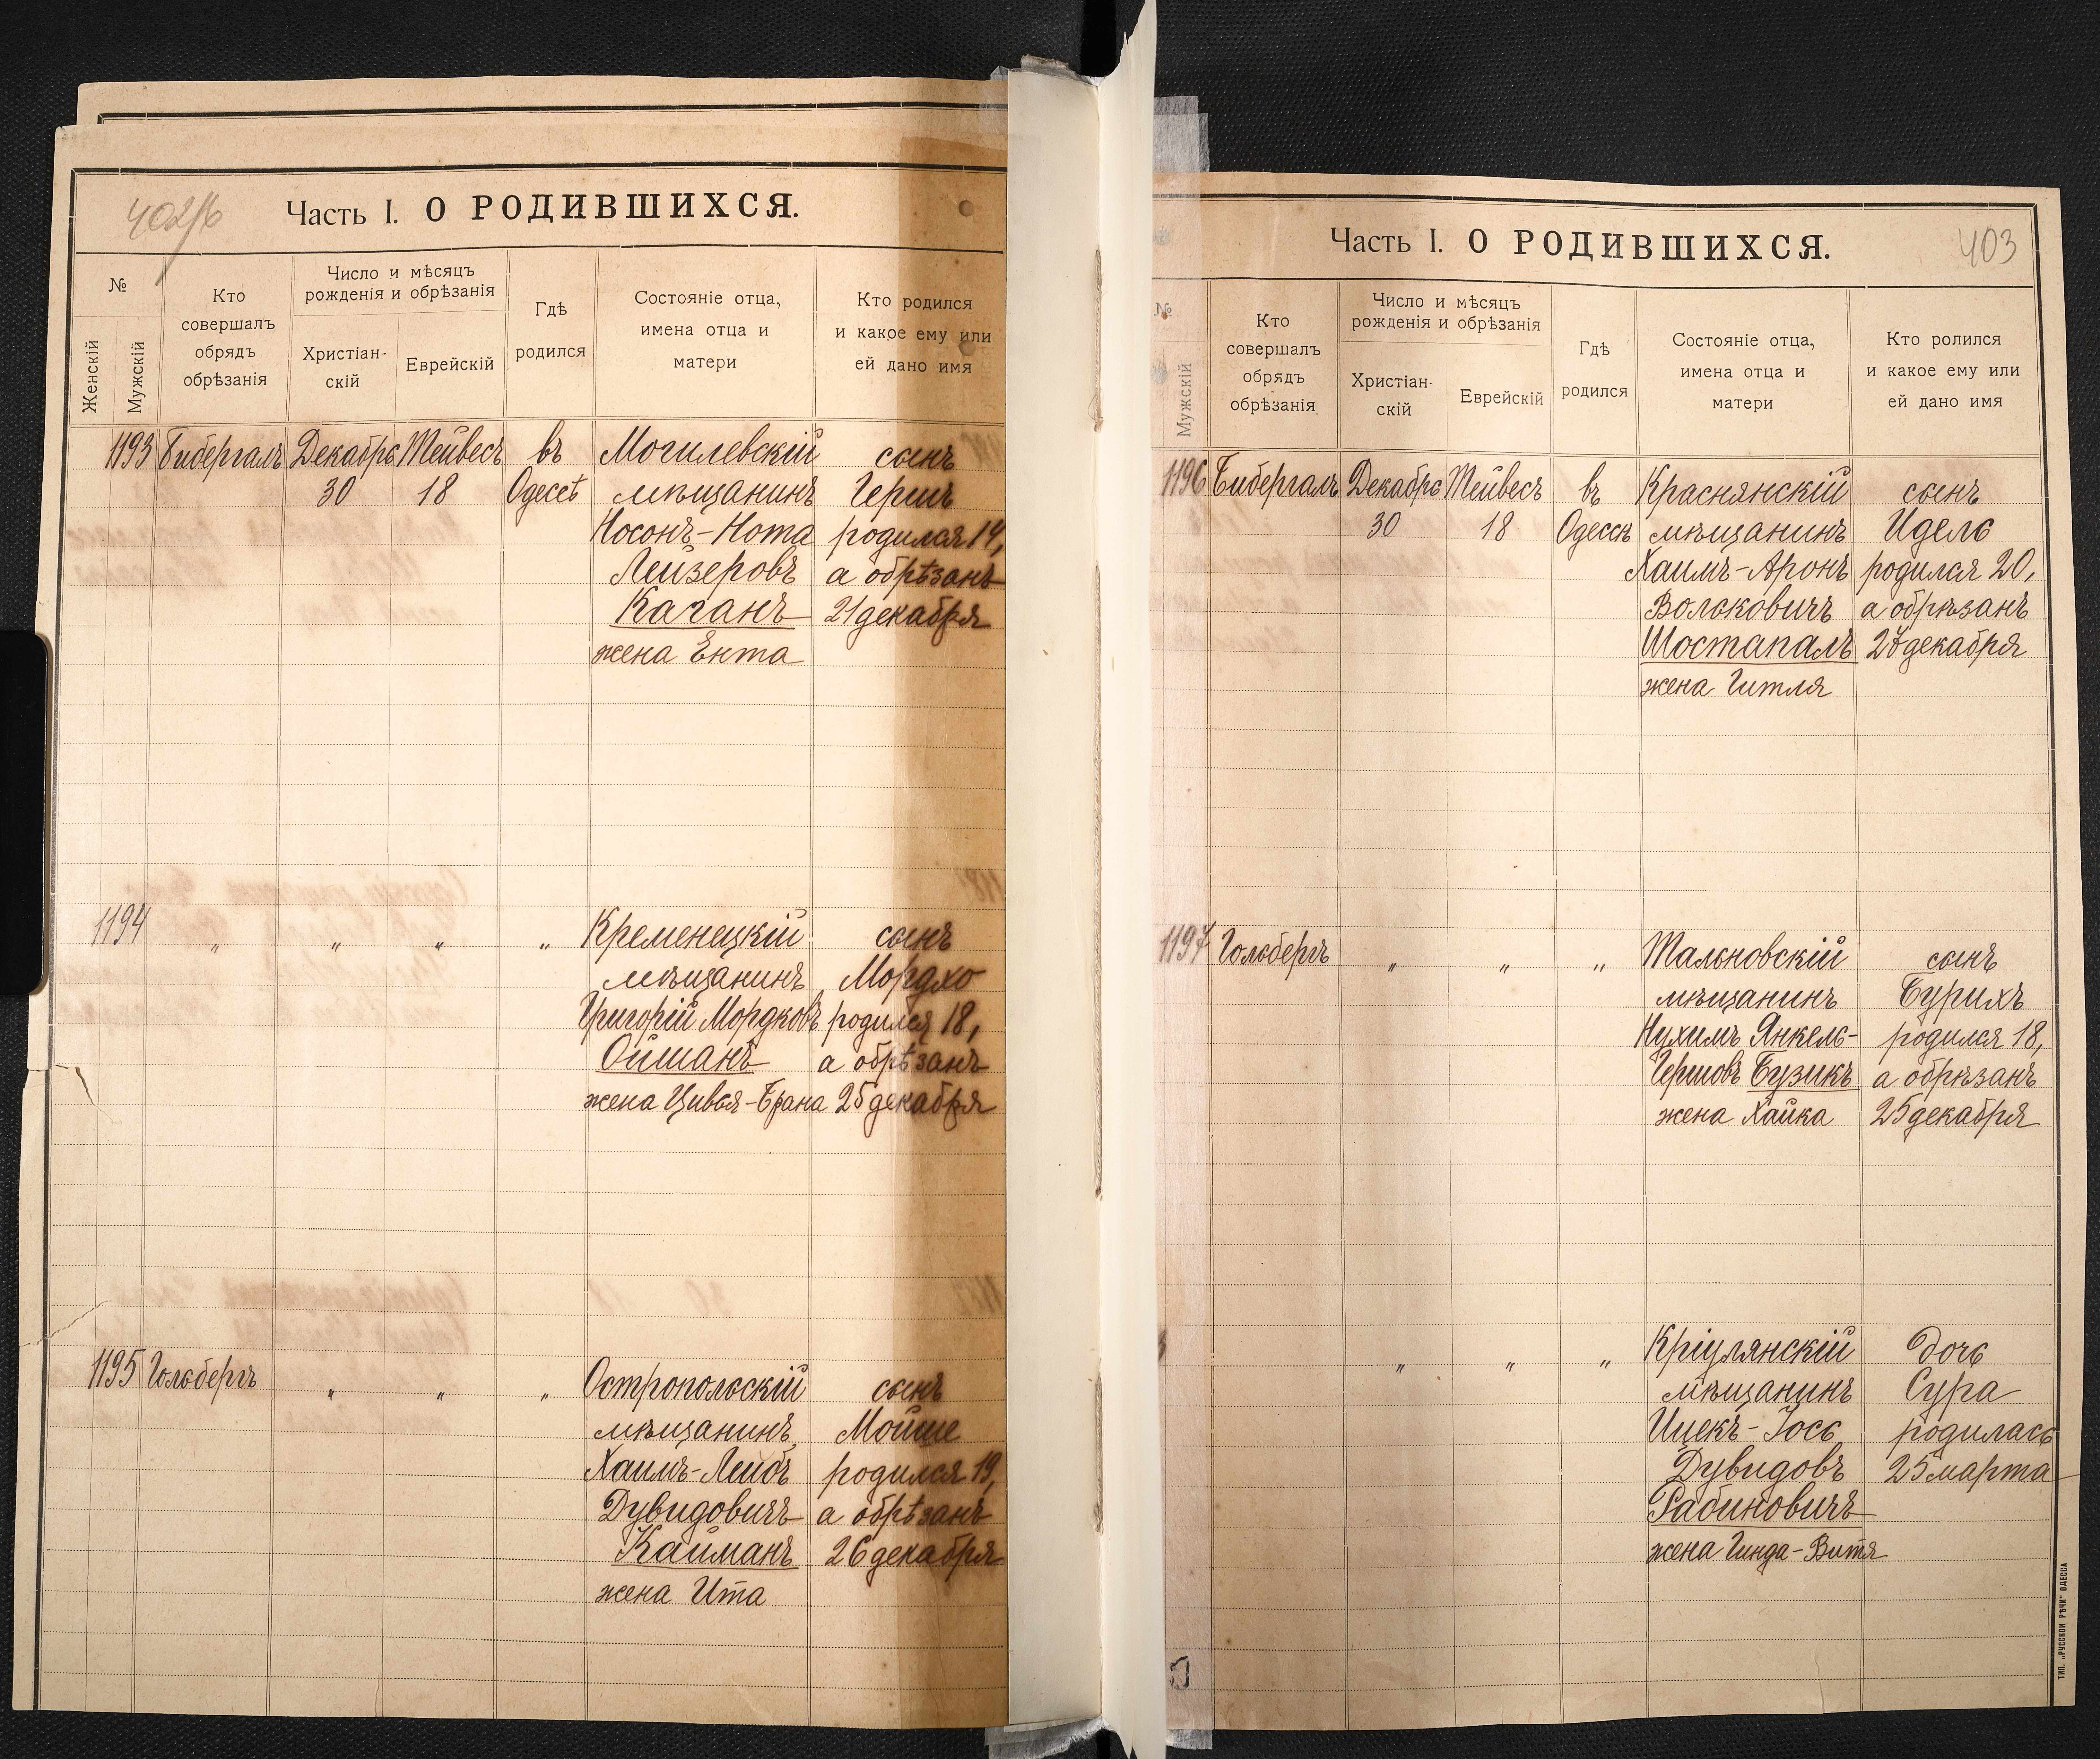 402/б
Часть I. О РОДИВШИХСЯ.
№
Женскій
Мужскій
Кто
совершалъ
обрядъ
обрѣзанія
Число и мѣсяцъ
рожденія и обрѣзанія
Христіан-
скій
Еврейскій
Гдѣ
родился
Состояніе отца,
имена отца и
матери
Кто родился
и какое ему или
ей дано имя
1193 Бибергалъ Декабрь Тейвесъ въ Могилевскій сынъ
30 18 Одессѣ мѣщанинъ Герш
Носонъ-Нота родился 14,
Лейзеровъ а обрѣзанъ
Каганъ 21 декабря
жена Ента
1194 " " " " Кременецкій сынъ
мѣщанинъ Мордхо
Григорій Мордковъ родился 18,
Ойшанъ а обрѣзанъ
жена Цивья-Брана 25 декабря
1195 Гольбергъ " " " Остропольскій сынъ
мѣщанинъ Мойше
Хаимъ-Лейбъ родился 19,
Дувидовичъ а обрѣзанъ
Кайманъ 26 декабря
жена Ита
Часть I. О РОДИВШИХСЯ.
403
№
Мужскій
Кто
совершалъ
обрядъ
обрѣзанія
Число и мѣсяцъ
рожденія и обрѣзанія
Христіан-
скій
Еврейскій
Гдѣ
родился
Состояніе отца,
имена отца и
матери
Кто ролился
и какое ему или
ей дано имя
1196 Бибергалъ Декабрь Тейвесъ въ Краснянскій сынъ
30 18 Одессѣ мѣщанинъ Идель
Хаимъ-Аронъ родился 20,
Вольковичъ а обрѣзанъ
Шостапалъ 27 декабря
жена Гитля
1197 Гольбергъ " " " Тальновскій сынъ
мѣщанинъ Бурихъ
Нухимъ Янкель- родился 18,
Гершовъ Бузикъ а обрѣзанъ
жена Хайка 25 декабря
" " " Кріулянскій дочь
мѣщанинъ Сура
Ицекъ-Іось родилась
Дувидовъ 25 марта
Рабиновичъ
жена Гинда-Витя
ТИП. „РУССКОЙ РѢЧИ" ОДЕССА